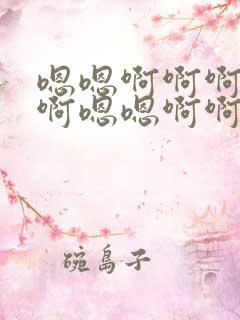 嗯嗯啊啊啊
啊嗯嗯啊啊
碗岛子